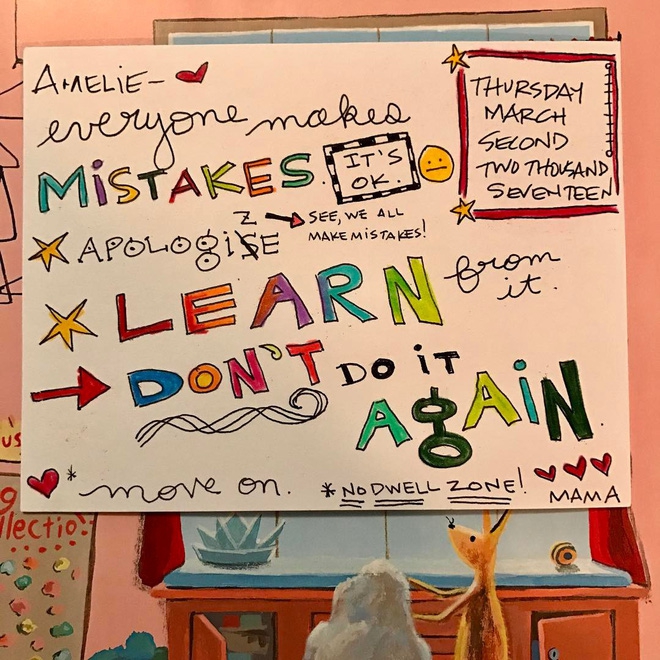 AMELIE-
everyone makes
MISTAKES.
IT'S
OK.
THURSDAY
MARCH
SECOND
TWO THOUSAND
SEVENTEEN
Z
APOLOGISE
SEE, WE ALL
MAKE MISTAKES!
LEARN from
it.
DON'T DO iT
AgAiN.
*move on.
*NO DWELL ZONE!
MAMA
us
g
llectio